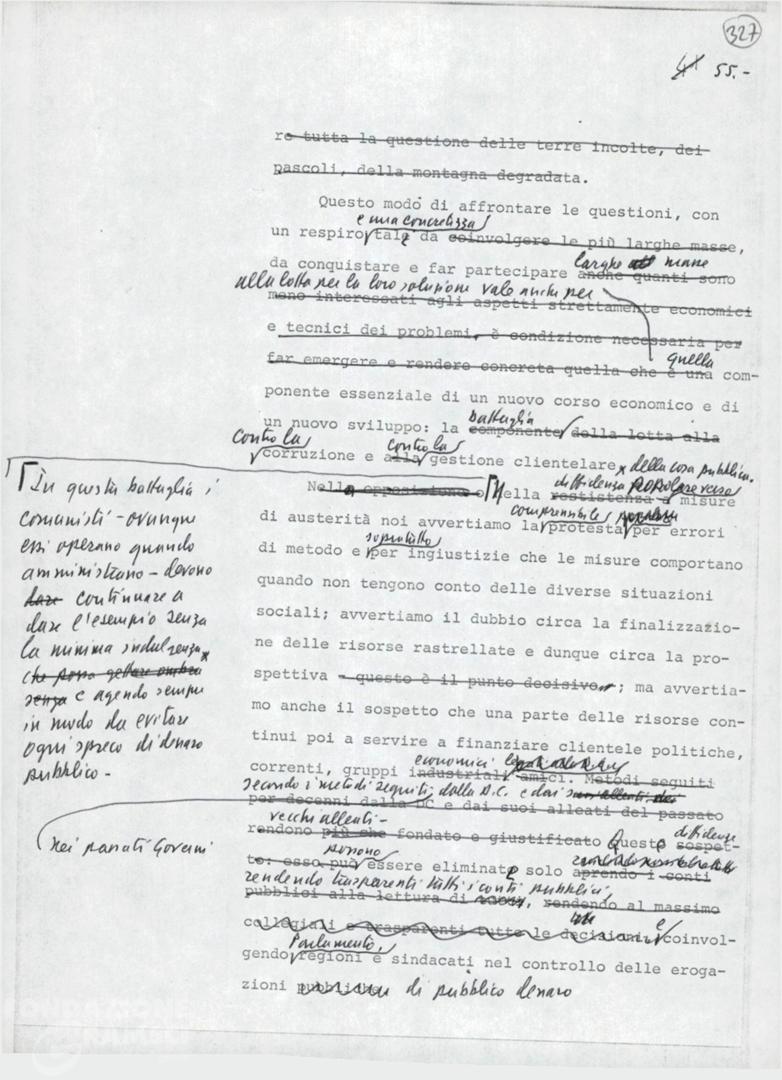 327
55.-
re tutta la questione delle terre incolte, dei
pascoli, della montagna degradata.
Questo modo di affrontare le questioni, con
e una concretezza
un respiro tale da coinvolgere le più larghe masse,
larghe masse
da conquistare e far partecipare anche quanti sono
alla lotta per la loro soluzione vale anche per
meno interessati agli aspetti strettamente economici
e tecnici dei problemi, è condizione necessaria per
quella
far emergere e rendere concreta quella che è una com-
ponente essenziale di un nuovo corso economico e di
battaglia
un nuovo sviluppo: la componente della lotta alla
contro la
contro la
corruzione e alla gestione clientelare della cosa pubblica.
diffidenza popolare verso
Nella opposizione o Nella resistenza a misure
comprensibile popolare
di austerità noi avvertiamo la protesta per errori
soprattutto
di metodo e per ingiustizie che le misure comportano
quando non tengono conto delle diverse situazioni
sociali; avvertiamo il dubbio circa la finalizzazio-
ne delle risorse rastrellate e dunque circa la pro-
spettiva - questo è il punto decisivo - ; ma avvertia-
mo anche il sospetto che una parte delle risorse con-
tinui poi a servire a finanziare clientele politiche,
economici
correnti, gruppi industriali amici. Metodi seguiti
secondo i metodi seguiti dalla D.C. e dai suoi alleati
per decenni dalla DC e dai suoi alleati del passato
vecchi alleati -
diffidenze
rendono più che fondato e giustificato Queste sospet-
possono
to: esso può essere eliminate solo aprendo i conti
rendendo trasparenti tutti i conti pubblici,
pubblici alla lettura di, rendendo al massimo
collegiali e trasparenti tutte le decisioni, e coinvol-
Parlamento,
gendo regioni e sindacati nel controllo delle eroga-
zioni pubbliche di pubblico denaro
In questa battaglia i
comunisti - ovunque
essi operano quando
amministrano - devono
dare continuare a
dare l'esempio senza
la minima indulgenza
che possa gettare ombra
senza e agendo sempre
in modo da evitare
ogni spreco di denaro
pubblico -
nei passati Governi